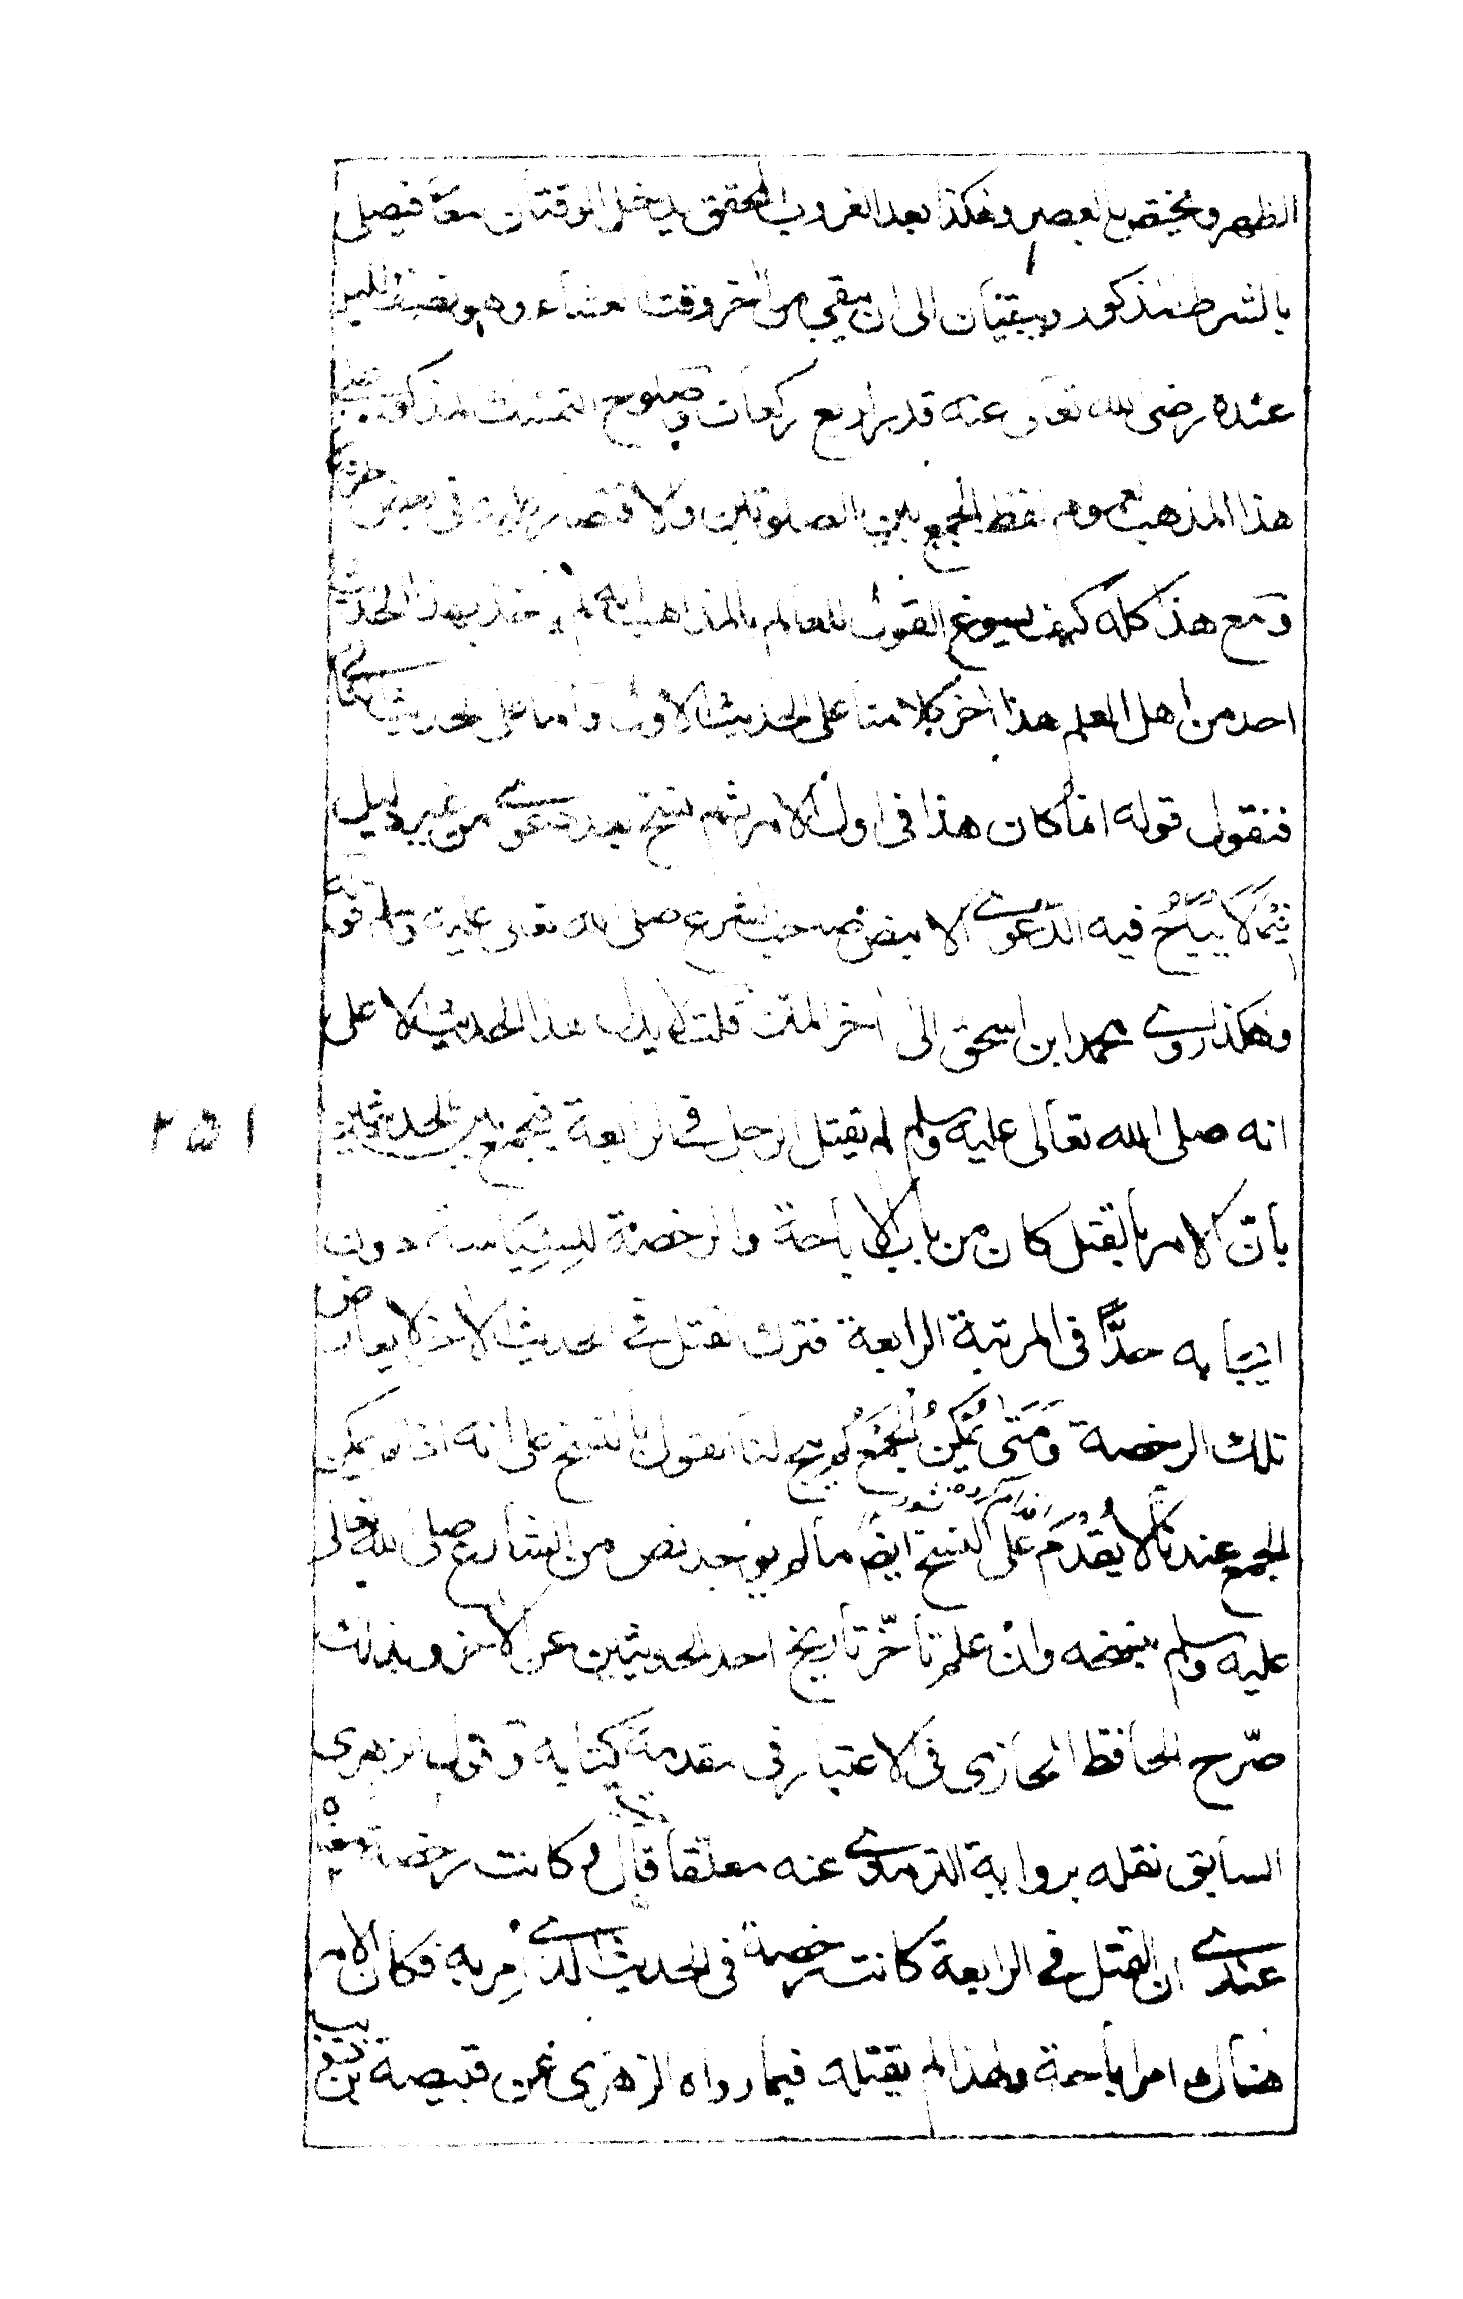 الظهر ويختص بالعصر وهكذا بعد الغروب المحقق يدخل الوقتان معا فيصلى
بالشرط المذكور ويبقيان الى ان يبقى من آخر وقت العشاء وهو نصف الليل
عنده رضى الله تعالى عنه قدر اربع ركعات وصلوح التمسك المذكور
هذا المذهب لعموم لفظ الجمع بين الصلوتين ولا قتصاره فى بعض
ومع هذا كله كيف يسوغ القول للعالم بالمذاهب انه لم ياخذ بهذا الحديث
احد من اهل العلم هذا آخر كلامنا على الحديث الاول واما على الحديث الثانى
فنقول قوله انما كان هذا فى اول الامر ثم نسخ بعد دعوى من غير دليل
فيما لا يباح فيه الدعوى الا بنص صاحب الشرع صلى الله تعالى عليه وسلم قوله
وهكذا روى محمد ابن اسحق الى آخر المتن قلت لا يدل هذا الحديث الا على
انه صلى الله تعالى عليه وسلم لم يقتل الرجل فى الرابعة فيجمع بين الحديثين
٢٥١
بان الامر بالقتل كان من باب الاباحة والرخصة للسياسة دون
ايجابه حدا فى المرتبة الرابعة فترك القتل فى الحديث الآخر لا يعارض
تلك الرخصة وَمَتى يُمْكِنُ الجَمْعُ لم يبح لنا القول بالنسخ على انه اذا لم يمكن
الجمع عندنا لا يُقْدَمُ عَلَى النسخ ايضا مالم يوجد نص من الشارع صلى الله تعالى
عليه وسلم بنسخه وان علم تأخّر تاريخ احد الحديثين عن الآخر وبذلك
صرّح الحافظ الحازمى فى الاعتبار فى مقدمة كتابه وقول الزهرى
السابق نقله برواية الترمذى عنه معلقا قال م كانت رخصة
عندى ان القتل فى الرابعة كانت رخصة فى الحديث الذى اُمِر به فكان الامر
هناك امر اباحة ولهذا لم يقتله فيما رواه الزهرى عن قبيصة بن